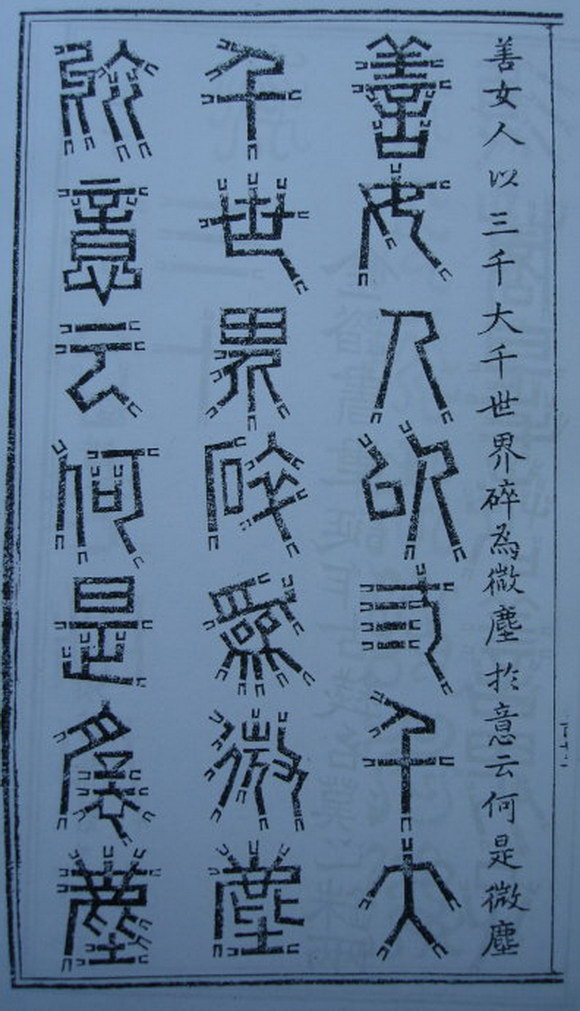 善女人以三千大千世界碎為微塵於意云何是微塵
善女人以三千大
千世界碎為微塵
於意云何是微塵